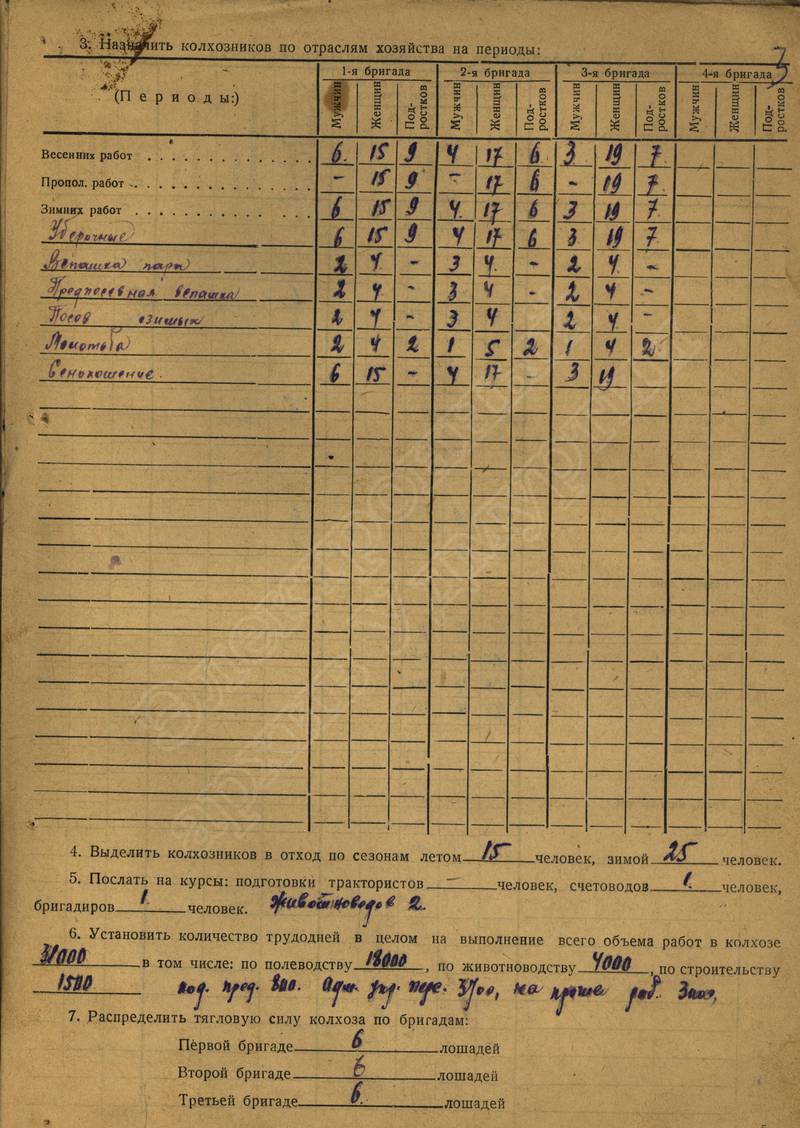 3
3. Назначить колхозников по отраслям хозяйства на периоды:
(Периоды:) 1-я бригада 2-я бригада 3-я бригада 4-я бригада
Мужчин Женщин Под-ростков Мужчин Женщин Под-ростков Мужчин Женщин Под-ростков Мужчин Женщин Под-ростков
Весенних работ 6. 15 9 4 17 6 3 19 7
Пропол. работ - 15 9 - 17 6 - 19 7
Зимних работ 6 15 9 4 17 6 3 19 7
Уборочные 6 15 9 4 17 6 3 19 7
Вспашка пара 2 4 - 3 4 - 2 4 -
Предпосевная вспашка 2 4 - 3 4 - 2 4 -
Посев озимых 2 4 - 3 4 2 4 -
Молотьба 2 4 2 1 5 2 1 4 2
Сенокошение. 6 15 - 4 17 - 3 19
4. Выделить колхозников в отход по сезонам летом 15 человек, зимой 25 человек.
5. Послать на курсы: подготовки трактористов — человек, счетоводов 1. человек,
бригадиров 1 человек. Животноводов 2.
6. Установить количество трудодней в целом на выполнение всего объема работ в колхозе
31000 в том числе: по полеводству 18000, по животноводству 4000, по строительству
1500 под. пред. 800.
7. Распределить тягловую силу колхоза по бригадам:
Первой бригаде 6 лошадей
Второй бригаде 6 лошадей
Третьей бригаде 6. лошадей